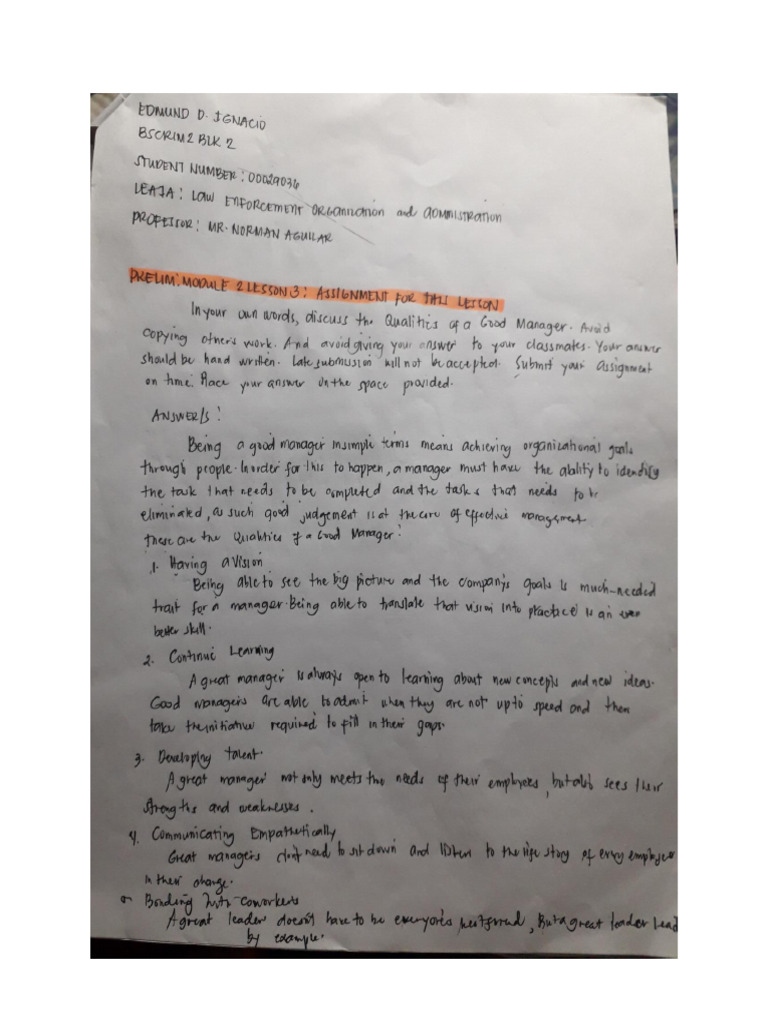 EDMUND D. IGNACIO
BSCRIM2 BLK 2
STUDENT NUMBER: 00029036
LEA3A: LAW ENFORCEMENT ORGANIZATION and ADMINISTRATION
PROFESSOR: MR. NORMAN AGUILAR
PRELIM: MODULE 2 LESSON 3: ASSIGNMENT FOR THIS LESSON
In your own words, discuss the Qualities of a Good Manager. Avoid
copying other's work. And avoid giving your answer to your classmates. Your answer
should be hand written. Late submission will not be accepted. Submit your assignment
on time. Place your answer on the space provided.
ANSWER/S:
Being a good manager in simple terms means achieving organizational goals
through people. In order for this to happen, a manager must have the ability to identify
the task that needs to be completed and the tasks that needs to be
eliminated, as such good judgement is at the core of effective management
These are the Qualities of a Good Manager:
1. Having a Vision
Being able to see the big picture and the company's goals is much-needed
trait for a manager. Being able to translate that vision into practice is an even
better skill.
2. Continue Learning
A great manager is always open to learning about new concepts and new ideas.
Good managers are able to admit when they are not up to speed and then
take the initiative required to fill in their gaps.
3. Developing talent.
A great manager not only meets the needs of their employees, but also sees their
strengths and weaknesses.
4. Communicating Empathetically
Great managers don't need to sit down and listen to the life story of every employee
in their charge.
Bonding with coworkers
A great leader doesn't have to be everyone's best friend, But a great leader lead
by example.